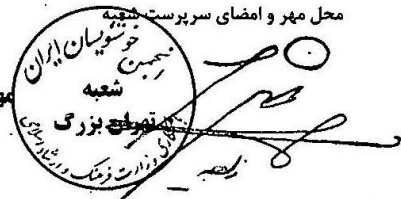 محل مهر و امضای سرپرست شعبه
انجمن خوشنویسان ایران
شعبه
تهران بزرگ
با همکاری وزارت فرهنگ و ارشاد اسلامی